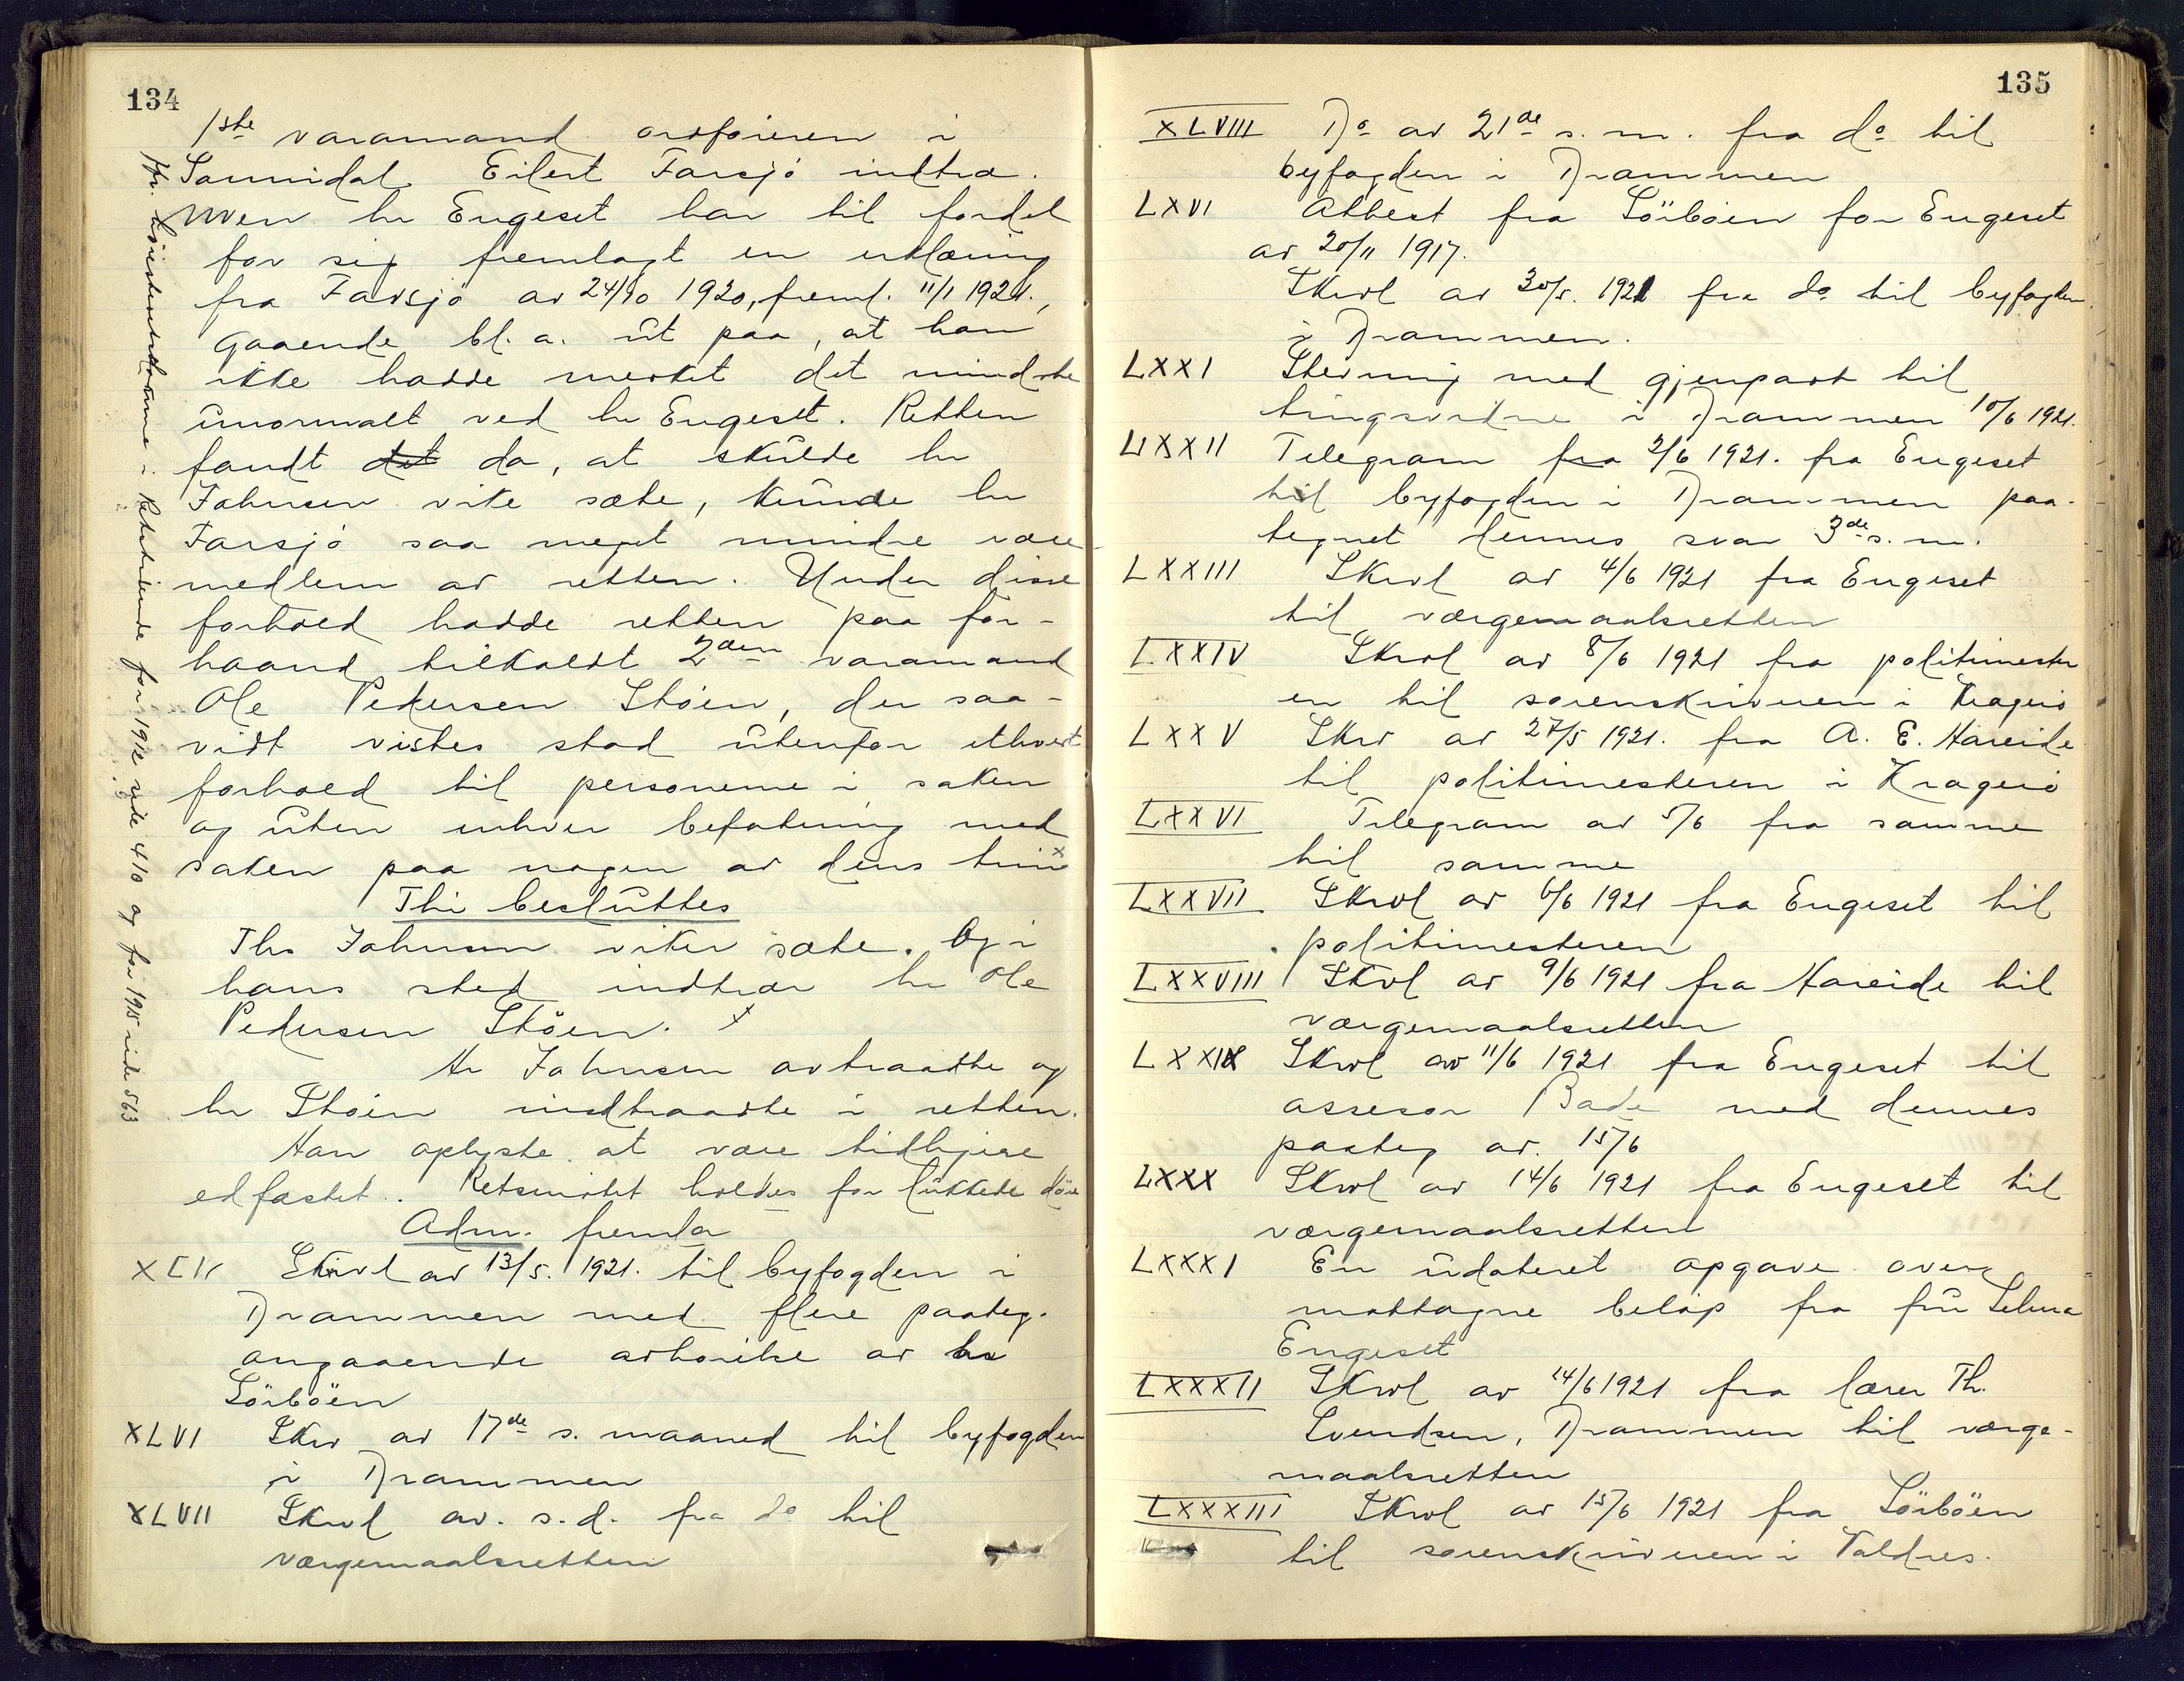 134
1ste varamand ordføreren i
Sannidal Eilert Farsjø indtræ.
Men hr Engeset har til fordel
for sig fremlagt en erklæring
fra Farsjø av 24/10 1920, freml. 11/1 1921.,
gaaende bl. a. ut paa, at han
ikke hadde merket det mindste
unormalt ved hr Engeset. Retten
fandt det da, at skulde hr
Johnsen vike sæte, kunde hr
Farsjø saa meget mindre være
medlem av retten. Under disse
forhold hadde retten paa for-
haand tilkaldt 2den varamand
Ole Pedersen Støen, der saa-
vidt vistes stod utenfor ethvert
forhold til personerne i saken
og uten enhver befatning med
saken paa nogen av dens trin x
Thi besluttes
Ths Johnsen viker sæte. Og i
hans sted indtrær hr Ole
Pedersen Støen. x
Hr Johnsen avtraadte og
hr Støen indtraadte i retten.
Han oplyste at være tidligere
edfæstet. Retsmøtet holdes for lukkede døre
Adm. fremla
XLV Skrivl av 13/5. 1921. til byfogden i
Drammen med flere paateg.
angaaende avhørelse av hr
Sörböen
XLVI Skr av 17de s. maaned til byfogden
i Drammen
XLVII Skrvl av. s. d. fra do til
værgemaalsretten
x jfr. Høiesteretsdomme i Retstidende for 1912 side 410 og for 1915 side 563
135
XLVIII Do av 21de s. m. fra do til
byfogden i Drammen
LXVI Attest fra Sörböen for Engeset
av 20/11 1917.
Skrvl av 30/5. 1921 fra do til byfogden
i Drammen.
LXXI Stevning med gjenpart til
tingsvidne i Drammen 10/6 1921.
LXXII Telegram fra 2/6 1921. fra Engeset
til byfogden i Drammen paa-
tegnet dennes svar 3de s. m.
LXXIII Skrvl av 4/6 1921 fra Engeset
til værgemaalsretten
LXXIV Skrvl av 8/6 1921 fra politimester
en til sorenskriveren i Kragerø
LXXV Skrv av 27/5 1921. fra A. E. Hareide
til politimesteren i Kragerø
LXXVI Telegram av 5/6 fra samme
til samme
LXXVII Skrvl av 6/6 1921 fra Engeset til
politimesteren
LXXVIII Skrvl av 9/6 1921 fra Hareide til
værgemaalsretten
LXXIX Skrvl av 11/6 1921 fra Engeset til
assesor Bade med dennes
paateg av. 15/6
LXXX Skrvl av 14/6 1921 fra Engeset til
værgemaalsretten
LXXXI En udateret opgave over
mottagne beløp fra fru Selma
Engeset
LXXXII Skrvl av 14/6 1921 fra lærer Th.
Svendsen, Drammen til værge-
maalsretten
LXXXIII Skrvl av 15/6 1921 fra Sörböen
til sorenskriveren i Valdres.